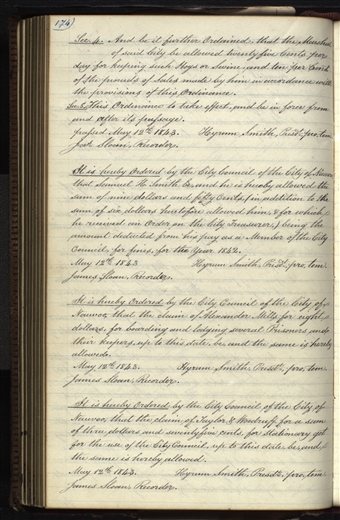 174)
Sec. 4. And be it further Ordained, that the Marshal
of said City be allowed twenty five Cents, per
day for keeping such Hogs or Swine, and ten per Cent
of the proceeds of Sales made by him in accordance with
the provisions of this Ordinance.
Sec. 5. This Ordinance to take effect, and be in force from
and after its passage.
passed May 12th. 1843. Hyrum Smith, Presdt., pro, tem
Jas. Sloan, Recorder.
It is hereby Ordered by the City Council of the City of Nauvoo
that Samuel H. Smith be, and he is hereby allowed the
sum of nine dollars and fifty Cents, (in addition to the
sum of six dollars heretofore allowed him, & for which
he received an Order on the City Treasurer,) being the
amount deducted from his pay as a Member of the City
Council, for fines, for the Year 1842.
May 12th. 1843 Hyrum Smith, Presdt., pro, tem
James Sloan, Recorder.
It is hereby Ordered by the City Council of the City of
Nauvoo, that the claim of Alexander Mills for eight
dollars, for boarding and lodging several Prisoners and
their keepers, up to this date, be, and the same is hereby
allowed.
May 12th. 1843. Hyrum Smith, Presdt., pro, tem
James Sloan, Recorder.
It is hereby Ordered by the City Council of the City of
Nauvoo, that the claim of Taylor & Woodruff for a sum
of three dollars and seventy five cents, for Stationary got
for the use of the City Council, up to this date, be, and
the same is hereby allowed.
May 12th. 1843. Hyrum Smith, Presdt., pro, tem
James Sloan, Recorder.